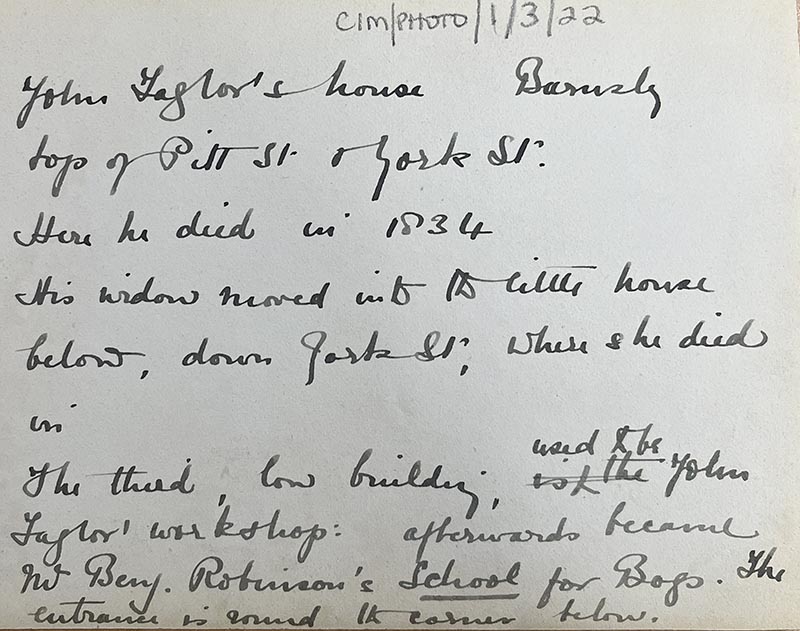 CIM/PHOTO/1/3/22
John Taylor's house Barnsly
top of Pitt St. & York St.
Here he died in 1834
His widow moved into the little house
below, down York St., where she died
in
used to be
The third, low building, is the John
Taylor' workshop: afterwards became
Mr Benj. Robinson's School for Boys. The
entrance is round the corner below.